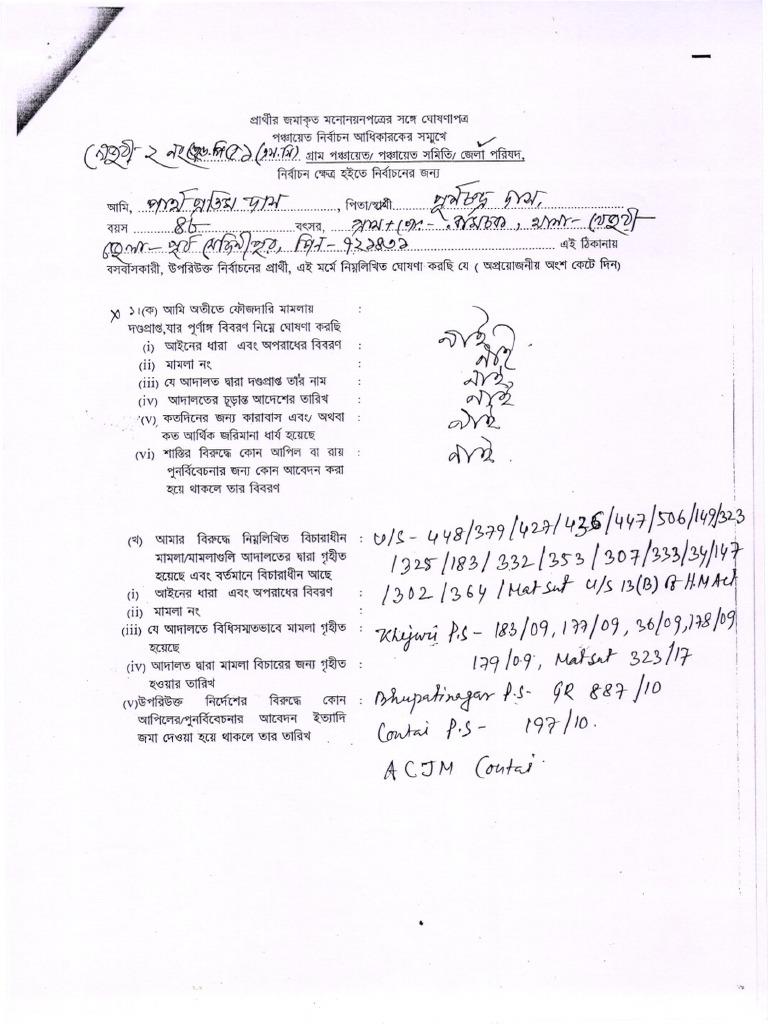 প্রার্থীর জমাকৃত মনোনয়নপত্রের সঙ্গে ঘোষণাপত্র
পঞ্চায়েত নির্বাচন আধিকারকের সম্মুখে
খেজুরী ২ নং গ্রাম পঞ্চায়েত/ পঞ্চায়েত সমিতি/ জেলা পরিষদ,
নির্বাচন ক্ষেত্র হইতে নির্বাচনের জন্য
আমি, পার্থ প্রতিম দাস, পিতা/স্বামী পূর্ণচন্দ্র দাস,
বয়স ৪৮ বৎসর, গ্রাম+পোঃ-, থানা- খেজুরী
জেলা- পূর্ব মেদিনীপুর, পিন- এই ঠিকানায়
বসবাসকারী, উপরিউক্ত নির্বাচনের প্রার্থী, এই মর্মে নিম্নলিখিত ঘোষণা করছি যে ( অপ্রয়োজনীয় অংশ কেটে দিন)
x ১।(ক) আমি অতীতে ফৌজদারি মামলায় :
দণ্ডপ্রাপ্ত,যার পূর্ণাঙ্গ বিবরণ নিম্নে ঘোষণা করছি
(i) আইনের ধারা এবং অপরাধের বিবরণ : নাই
(ii) মামলা নং : নাই
(iii) যে আদালত দ্বারা দণ্ডপ্রাপ্ত তা'র নাম : নাই
(iv) আদালতের চূড়ান্ত আদেশের তারিখ : নাই
(v) কতদিনের জন্য কারাবাস এবং/ অথবা : নাই
কত আর্থিক জরিমানা ধার্য হয়েছে
(vi) শাস্তির বিরুদ্ধে কোন আপিল বা রায় : নাই
পুনর্বিবেচনার জন্য কোন আবেদন করা
হয়ে থাকলে তার বিবরণ
(খ) আমার বিরুদ্ধে নিম্নলিখিত বিচারাধীন : U/S - 448/379/427/436/447/506/149/323
মামলা/মামলাগুলি আদালতের দ্বারা গৃহীত /325/183/332/353/307/333/34/147
হয়েছে এবং বর্তমানে বিচারাধীন আছে
(i) আইনের ধারা এবং অপরাধের বিবরণ : /302/364/Mat Sut U/S 13(B) of H.M Act
(ii) মামলা নং :
(iii) যে আদালতে বিধিসম্মতভাবে মামলা গৃহীত : Khejuri P.S - 183/09, 177/09, 36/09, 178/09
হয়েছে
179/09, Mat Sut 323/17
(iv) আদালত দ্বারা মামলা বিচারের জন্য গৃহীত
হওয়ার তারিখ
(v)উপরিউক্ত নির্দেশের বিরুদ্ধে কোন : Bhupatinagar P.S- GR 887/10
আপিলের/পুনর্বিবেচনার আবেদন ইত্যাদি Contai P.S - 197/10.
জমা দেওয়া হয়ে থাকলে তার তারিখ
ACJM Contai